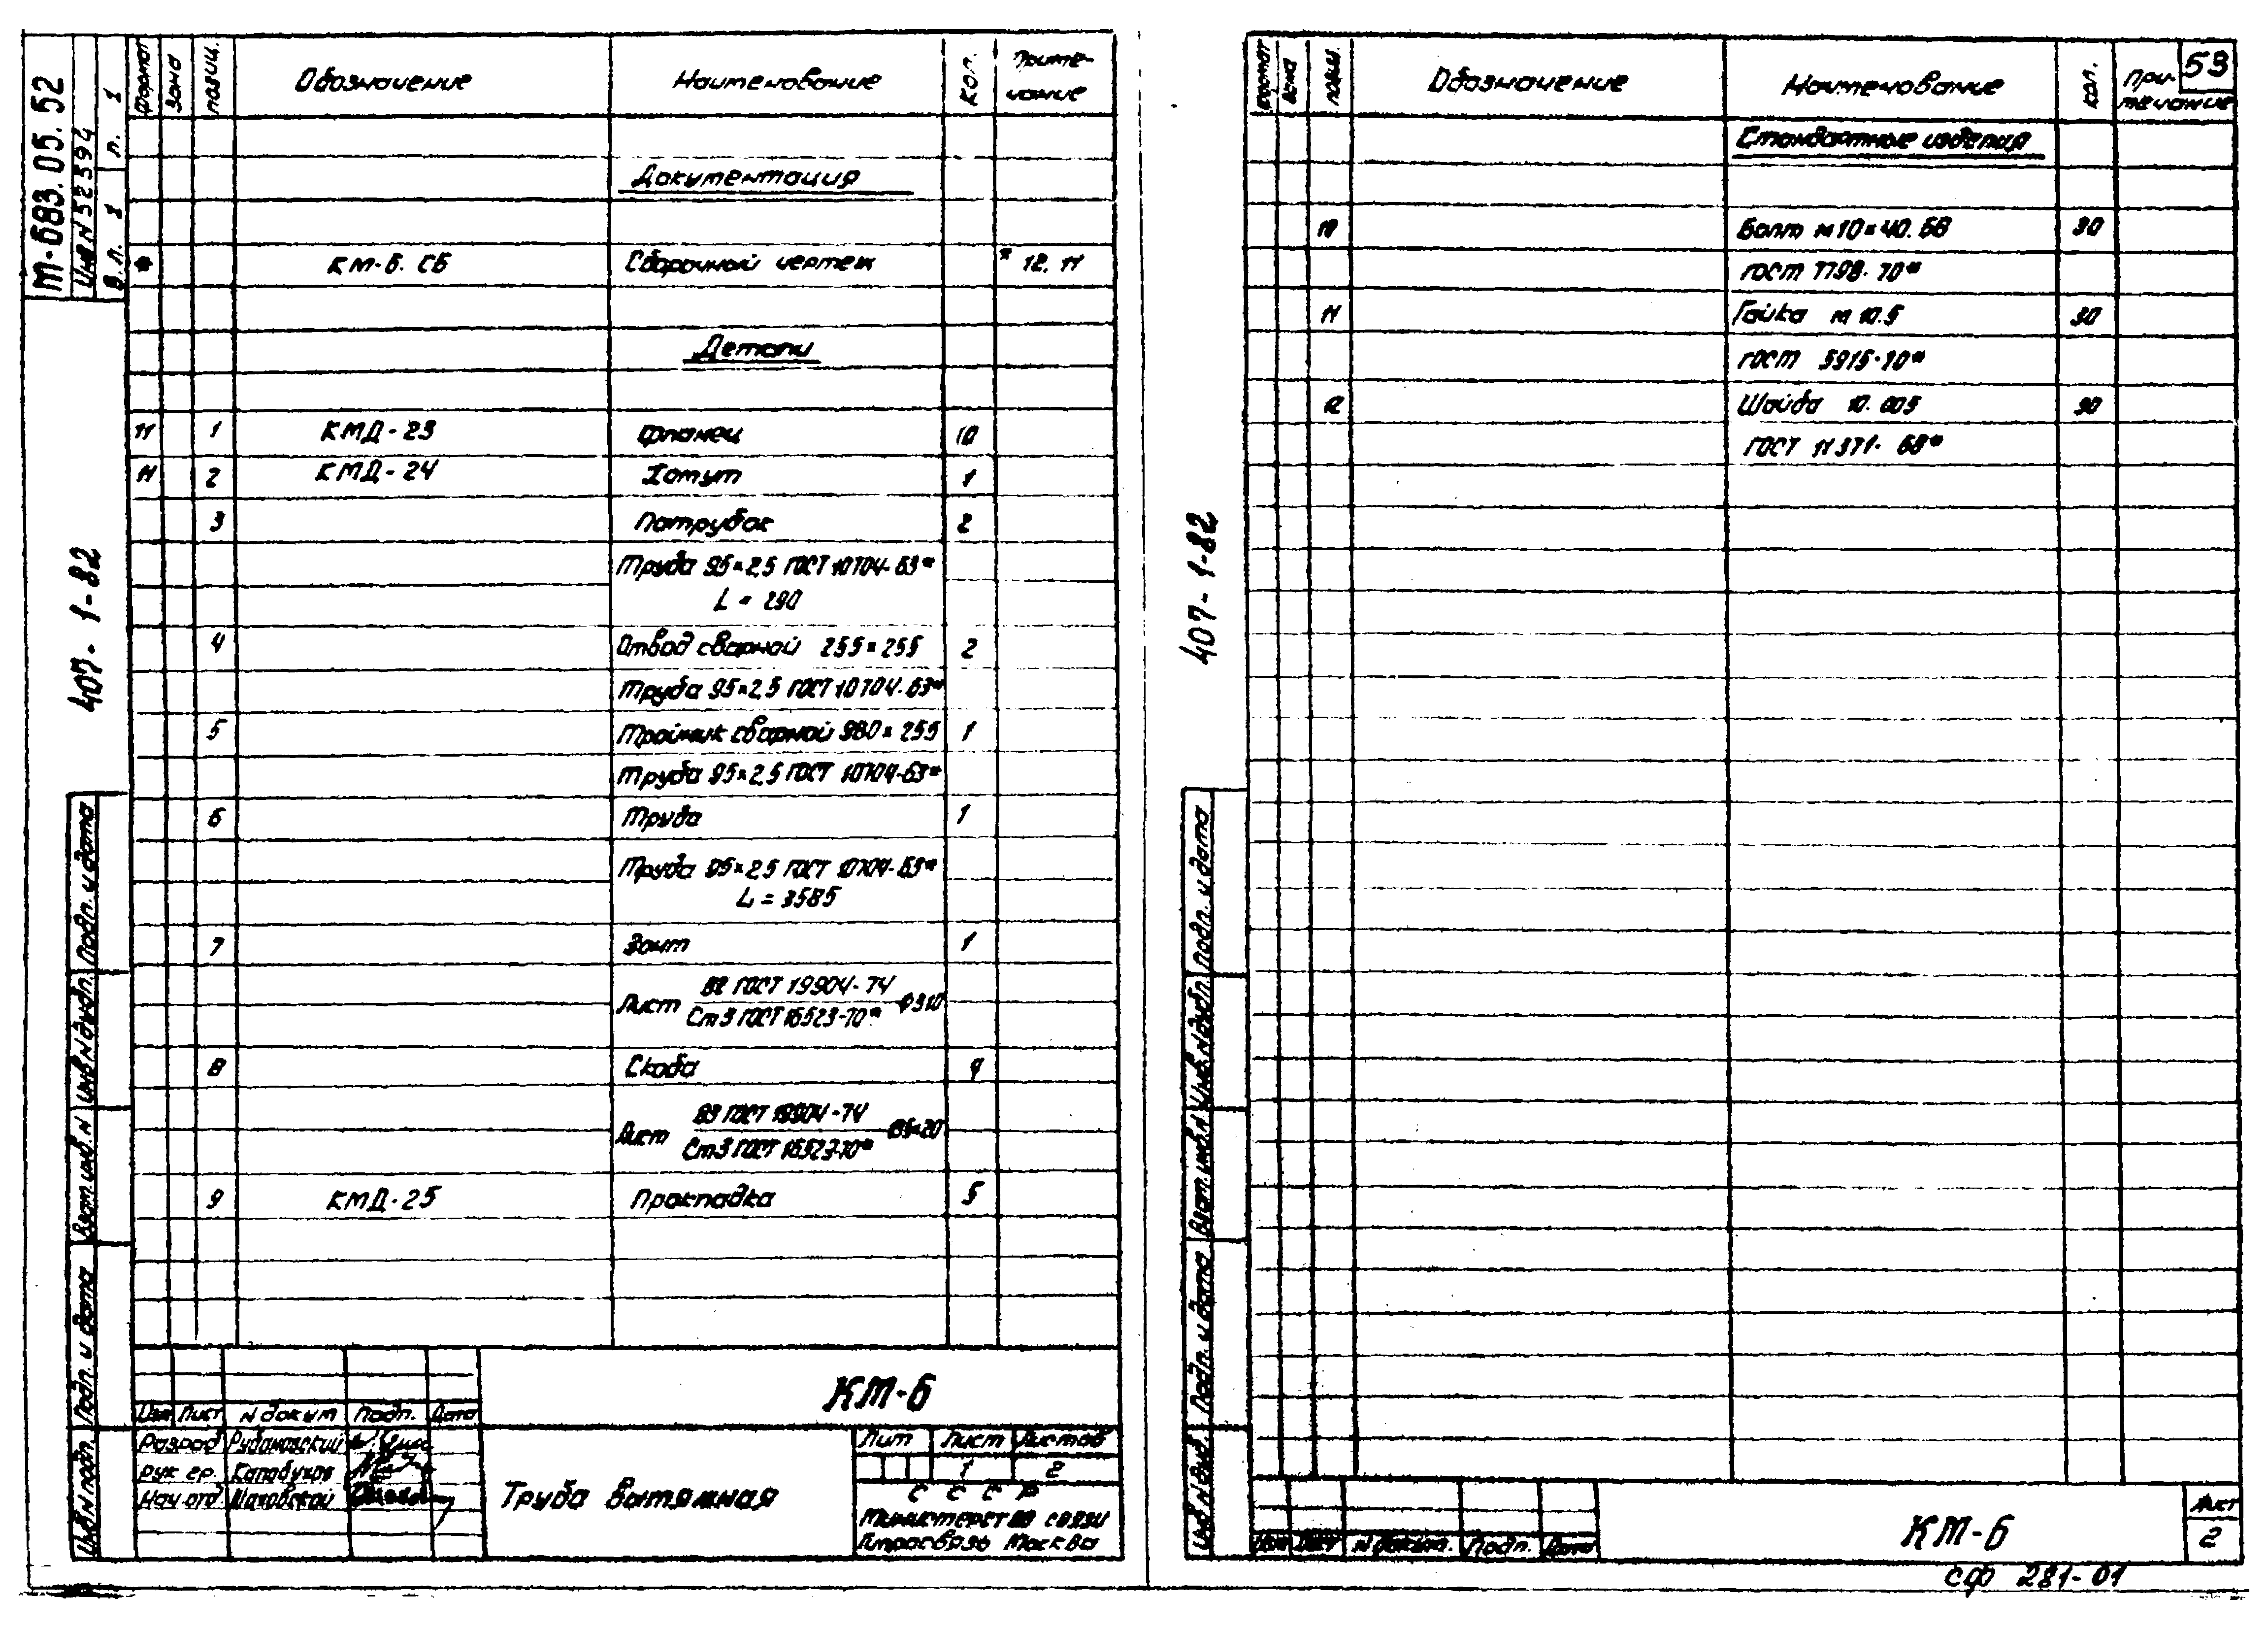 Формат Зона позиц. Обозначение Наименование Кол. Примечание
Документация
* КМ-6. СБ Сборочный чертеж * 12, 11
Детали
11 1 КМД-23 Фланец 10
11 2 КМД-24 Хомут 1
3 Патрубок 2
Труба 95×2,5 ГОСТ 10704-63*
L = 290
4 Отвод сварной 255×255 2
Труба 95×2,5 ГОСТ 10704-63*
5 Тройник сварной 980×255 1
Труба 95×2,5 ГОСТ 10704-63*
6 Труба 1
Труба 95×2,5 ГОСТ 10704-63*
L = 3585
7 Зонт 1
В2 ГОСТ 19904-74
Лист ф310
Ст3 ГОСТ 16523-70*
8 Скоба
В3 ГОСТ 19904-74
Лист
Ст3 ГОСТ 16523-70*
9 КМД-25 Прокладка 5
КМ-6
Изм Лист N докум Подп. Дата
Разраб Рубановский
рук гр. Карабухов
Нач отд Маховской
Труба вытяжная
Лит Лист Листов
1 2
С С С Р
Министерство связи
Гипросвязь Москва
Т-683.05.52
Инв N 52594
В.Л. 1 Л. 1
407-1-82
Подп. и дата
Инв N дубл.
Взат. инв. N
Подп. и дата
Инв N подл.
53
Формат Зона позиц. Обозначение Наименование Кол. Примечание
Стандартные изделия
10 Болт м10×40.68 30
гост 7798-70*
11 Гайка м10.5 30
гост 5915-70*
12 Шайба 10.005 30
ГОСТ 11371-68*
407-1-82
Подп. и дата
Инв. N дубл.
Взат. инв. N
Подп. и дата
Изм Лист N докум. Подп. Дата
КМ-6
Лист
2
сф 281-01